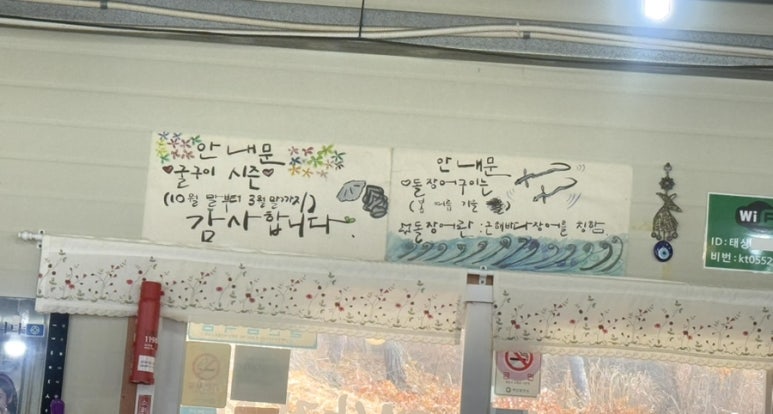 안내문
굴구이 시즌
(10월 말부터 3월 말까지)
감사합니다.
안내문
돌장어구이는
(봄 여름 가을
※돌장어란 : 근해바다장어를 칭함
Wi
ID : 태상
비번 : kt0552
119